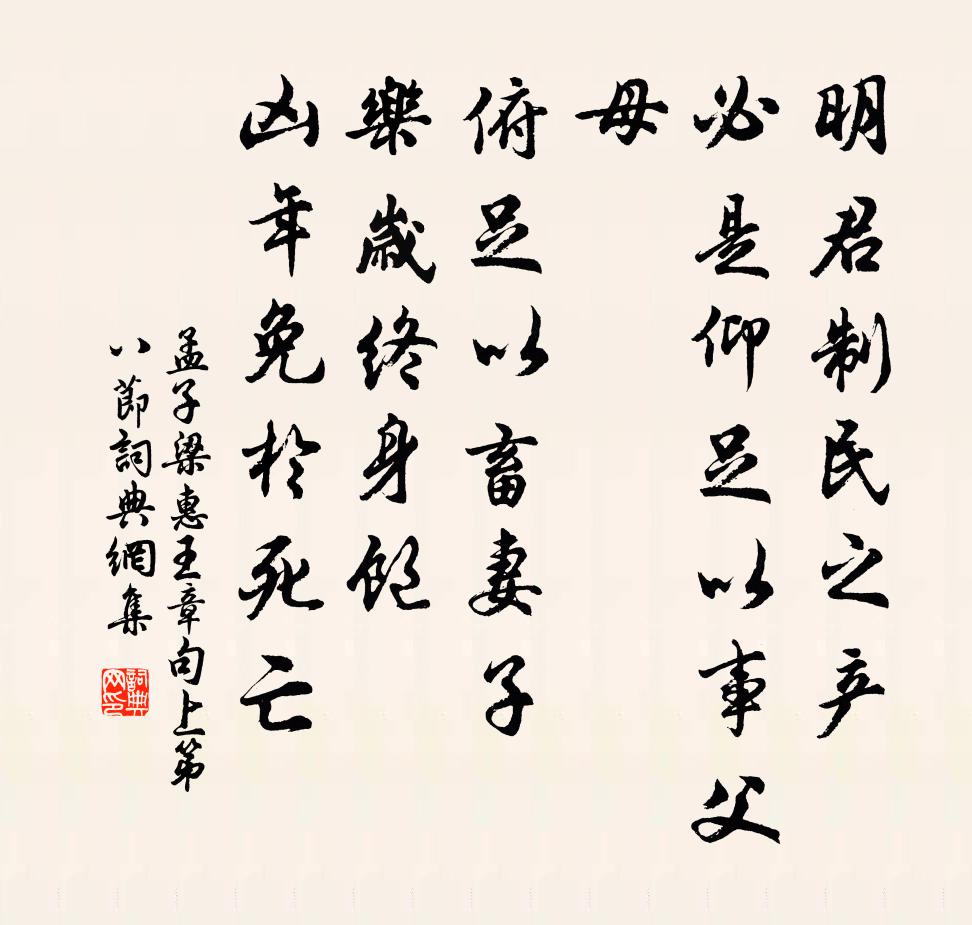 明君制民之产
必是仰足以事父
母
俯足以畜妻子
樂歲终身飽
凶年免於死亡
孟子梁惠王章句上第
八節詞典網集
詞典
网印